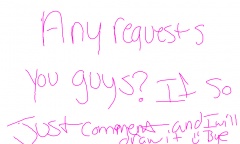 Any requests
you guys? If so
Just comment and I will
draw it ü Bye